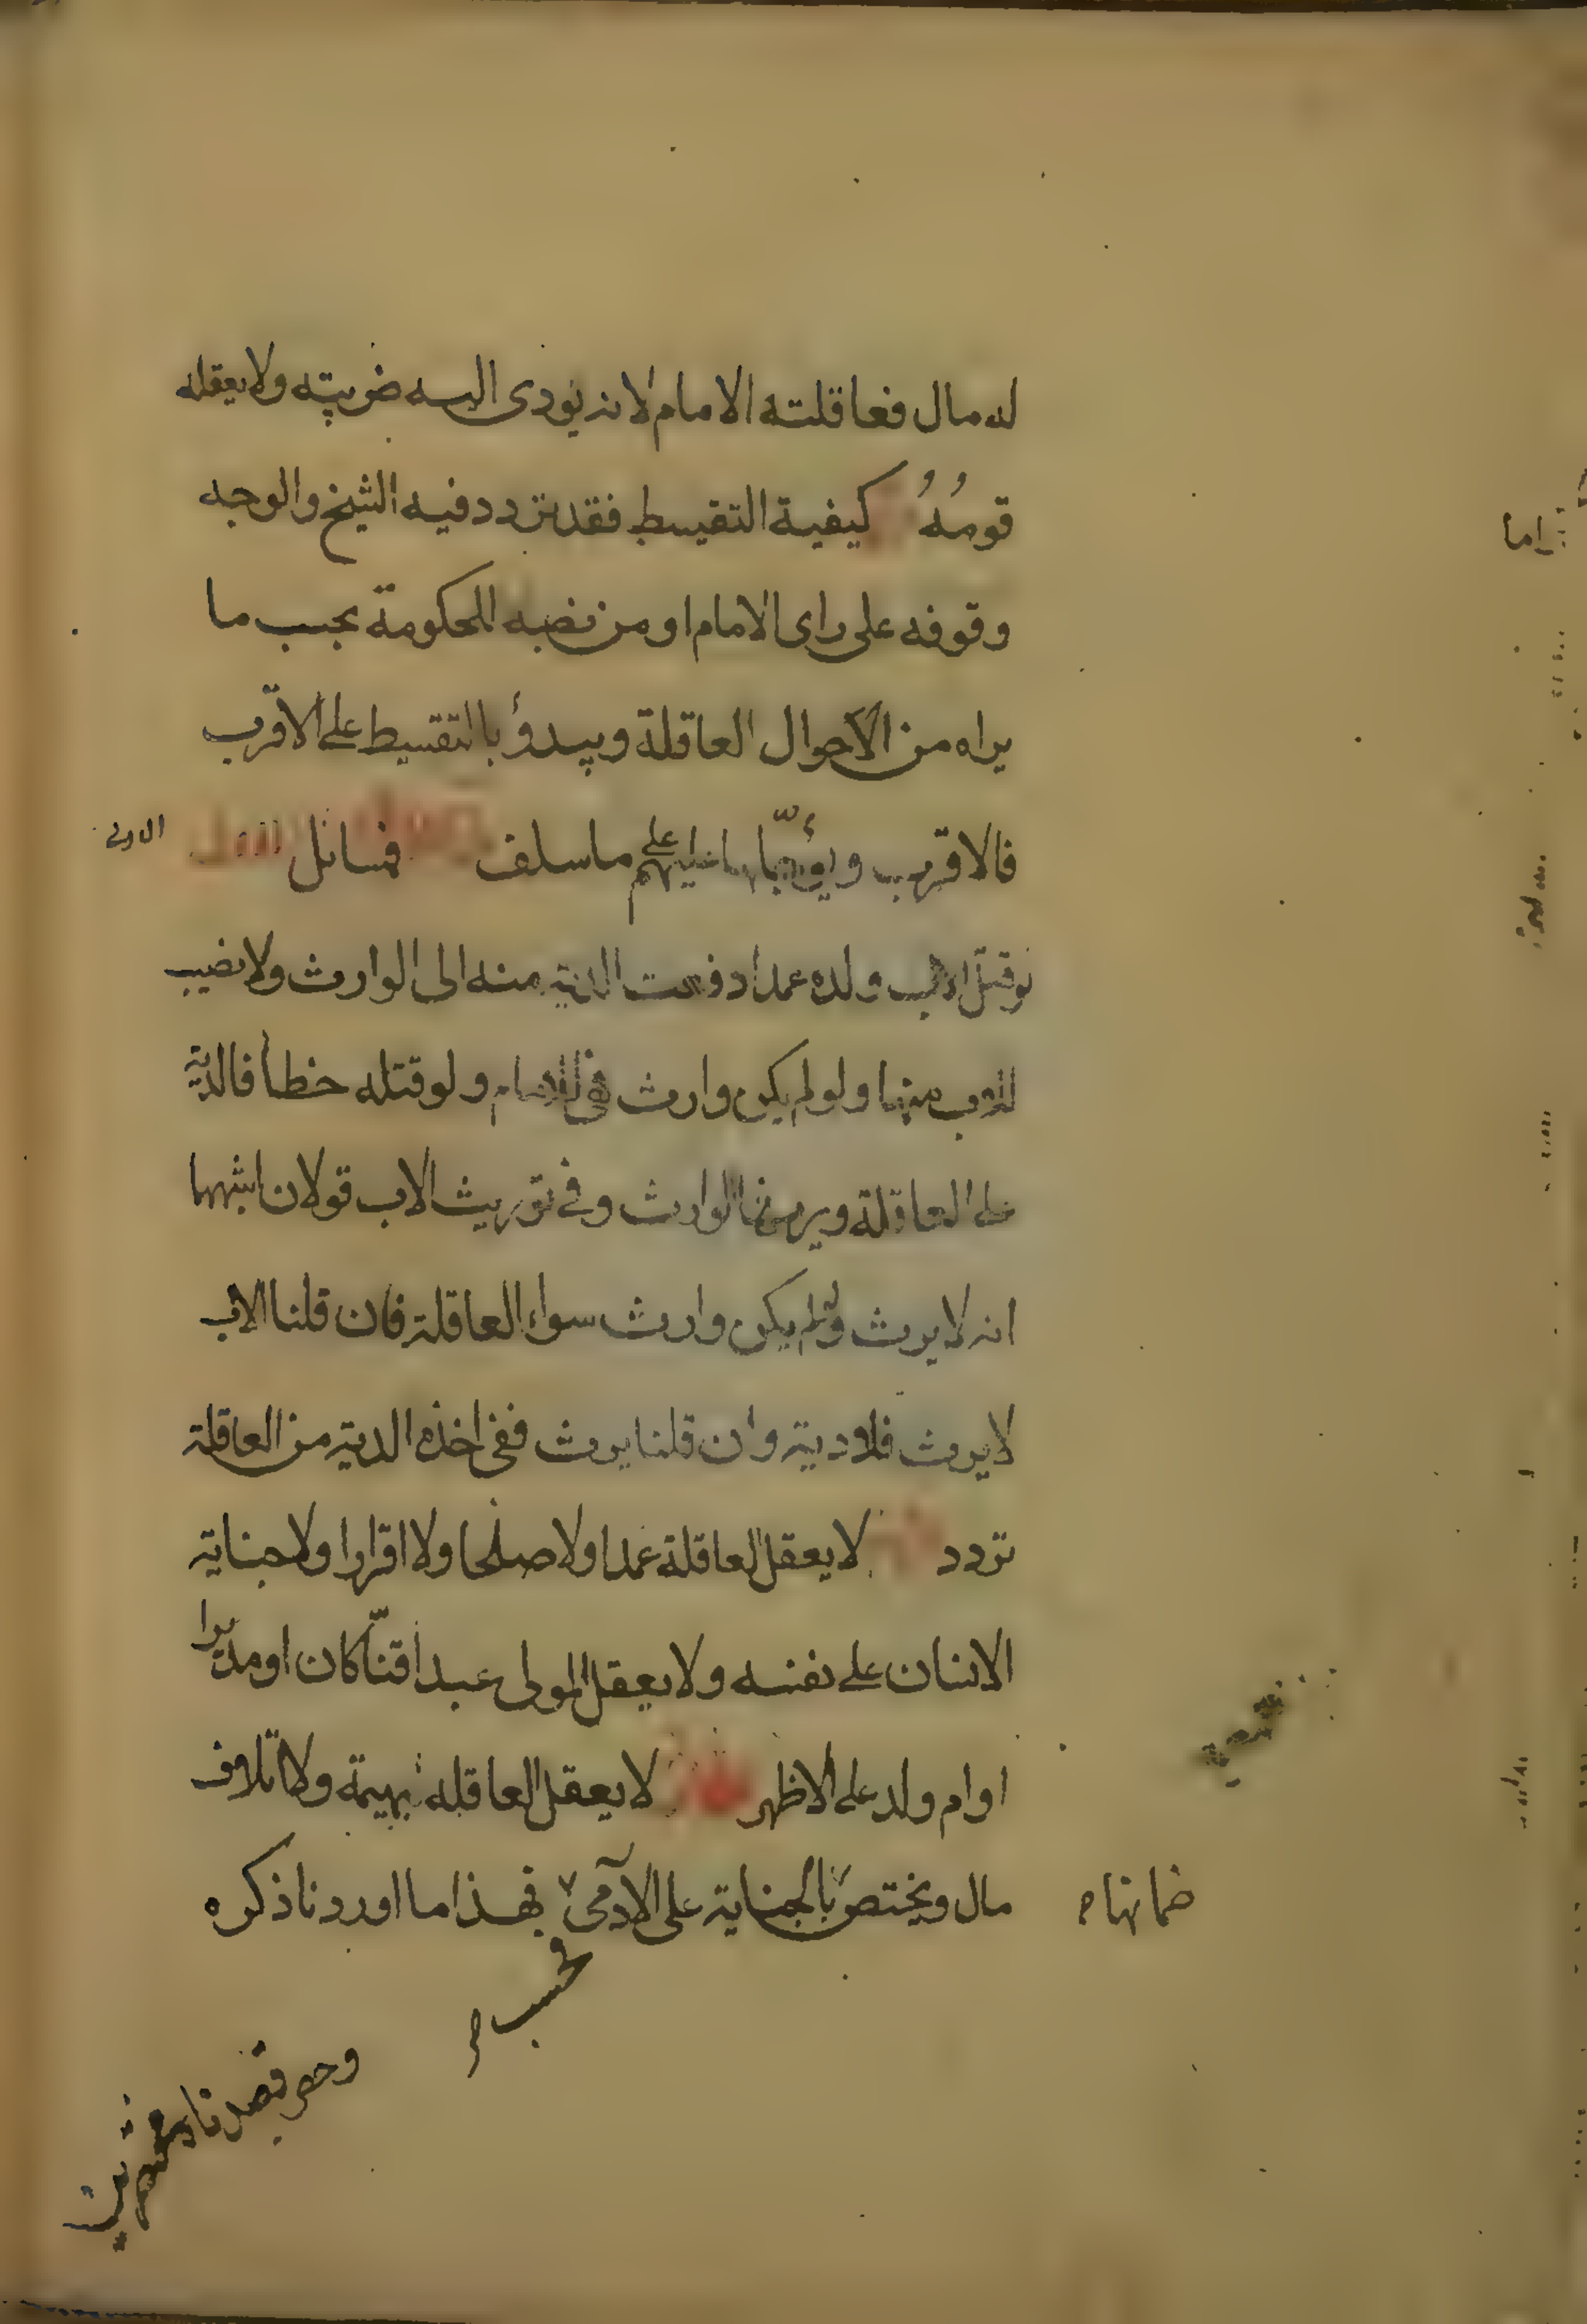 له مال فعاقلته الامام لانه يودى اليه ضريبته ولا يعقله
قومُهُ كيفية التقسيط فقد تردد فيه الشيخ والوجه
اما
وقوفه على راى الامام او من نصبه للحكومة بحسب ما
يراه من الاحوال العاقلة ويبدؤ بالتقسيط على الاقرب
فالاقرب ويؤجلها عليهم على ما سلف مسائل
الاولى
لو قتل الاب ولده عمدا دفعت الدية منه الى الوارث ولا نصيب
للاب منها ولو لم يكن وارث فهى للامام ولو قتله خطأ فالدية
على العاقلة ويرثها الوارث وفى توريث الاب قولان اشبهها
انه لا يرث ولو لم يكن وارث سواء العاقلة فان قلنا الاب
لا يرث فلا دية وان قلنا يرث ففى اخذه الدية من العاقلة
تردد لا يعقل العاقلة عمدا ولا صلحا ولا اقرارا ولا جناية
الانسان على نفسه ولا يعقل المولى عبدا قنّا كان او مدبرا
او ام ولد على الاظهر لا يعقل العاقله بهيمة ولا اتلاف
مال ويختص بالجناية على الآدمى فهذا ما اوردنا ذكره
ضمانها
فحسب
وحصر قصدنا